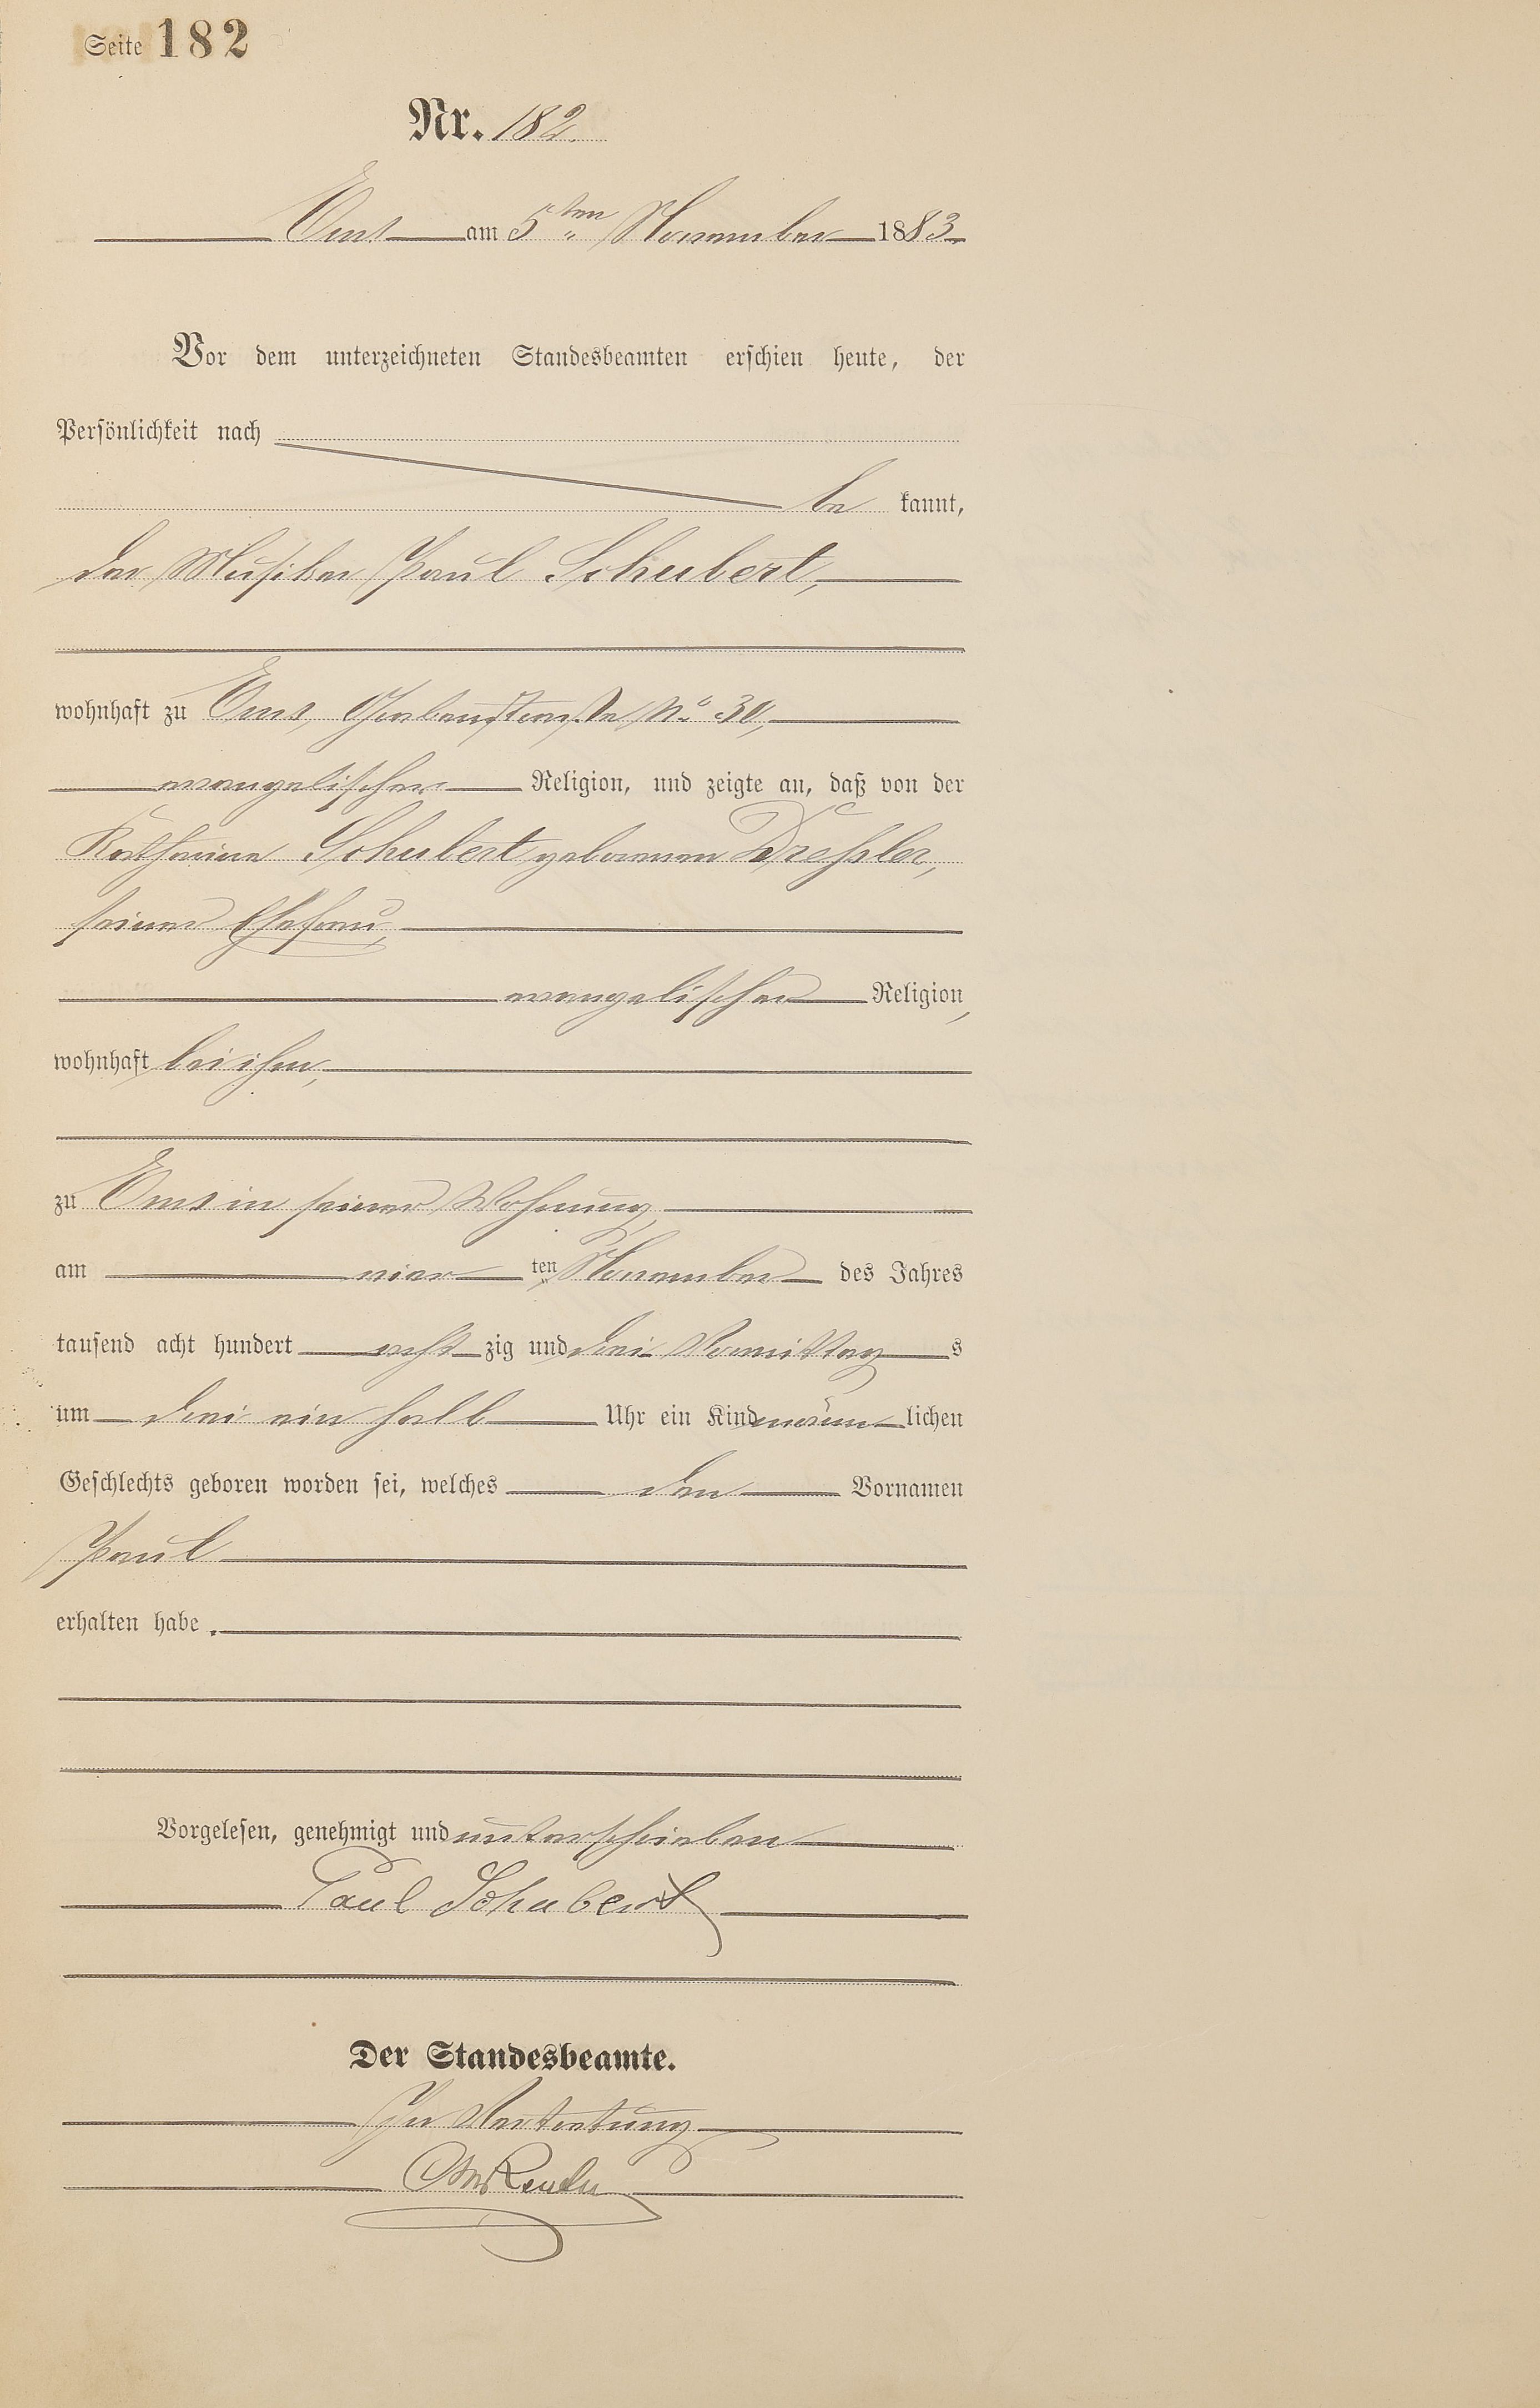 Seite 182
Nr. 182.
Ems am 5ten November 1883.
Vor dem unterzeichneten Standesbeamten erschien heute, der
Persönlichkeit nach
be kannt,
der Musiker Paul Schubert,
wohnhaft zu Ems, No 30,
evangelischer Religion, und zeigte an, daß von der
Katharina Schubert geborenen Dreßler,
seiner Ehefrau,
evangelischer Religion,
wohnhaft bei ihm,
zu Ems in seiner Wohnung,
am vier ten November des Jahres
tausend acht hundert acht zig und drei Vormittag s
um drei ein halb Uhr ein Kind männ lichen
Geschlechts geboren worden sei, welches den Vornamen
Paul
erhalten habe.
Vorgelesen, genehmigt und unterschrieben
Paul Schubert
Der Standesbeamte.
In Vertretung